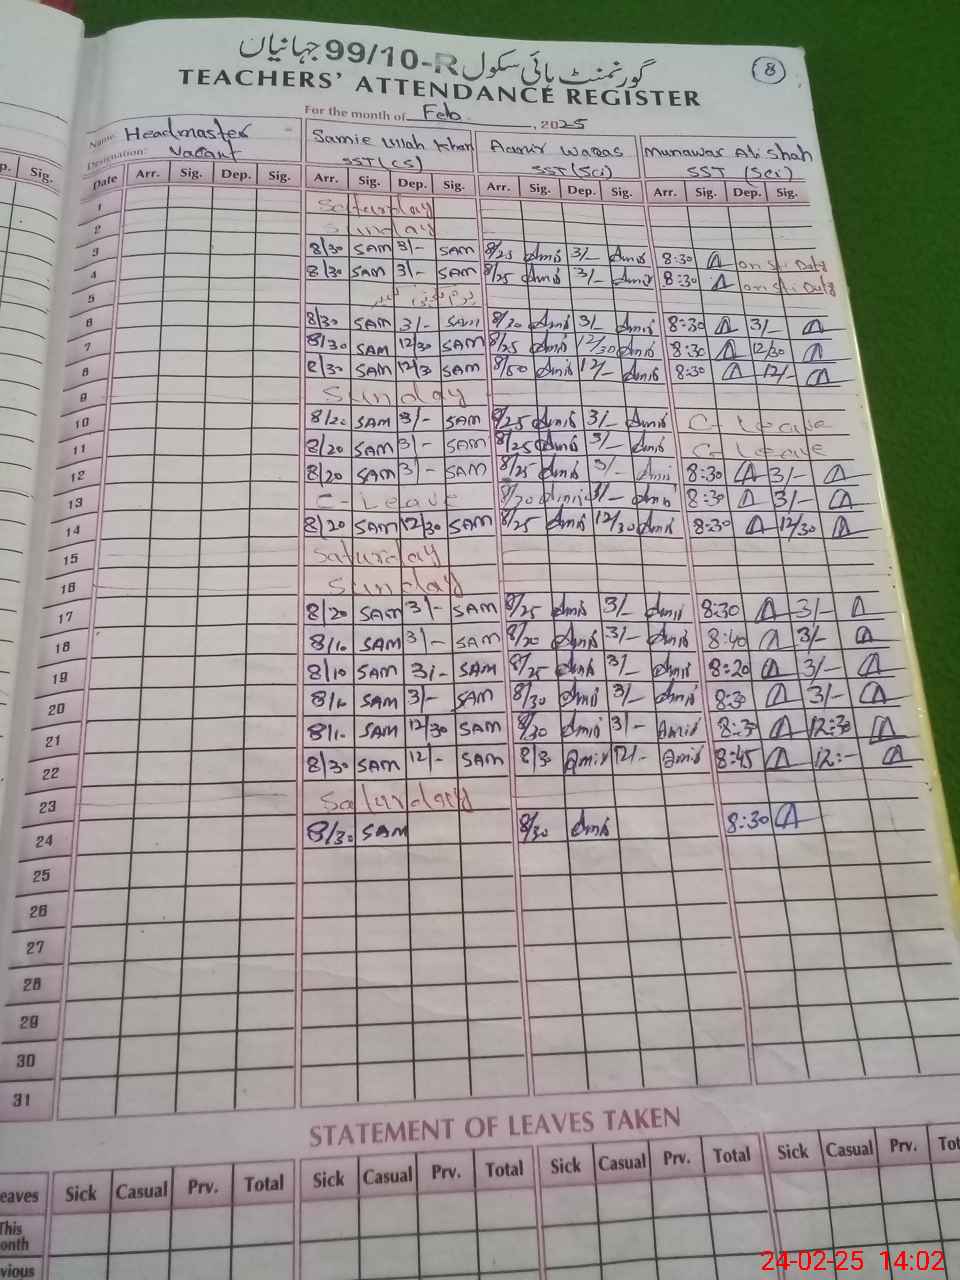 گورنمنٹ ہائی سکول 99/10-R جہانیاں
8
TEACHERS' ATTENDANCE REGISTER
For the month of Feb, 2025
Name: Headmaster Samie Ullah Khan Aamir Waqas Munawar Ali Shah
Designation: Vacant SST(CS) SST(Sci) SST (Sci)
p. Sig. Date Arr. Sig. Dep. Sig. Arr. Sig. Dep. Sig. Arr. Sig. Dep. Sig. Arr. Sig. Dep. Sig.
1 Saturday
2 Sunday
3 8/30 SAM 3/- SAM 8/25 Amir 3/- Amir 8:30 on Duty
4 8/30 SAM 3/- SAM 8/25 Amir 3/- Amir 8:30 on Duty
5
6 8/30 SAM 3/- SAM 8/30 Amir 3/- Amir 8:30 3/-
7 8/30 SAM 12/30 SAM 8/25 Amir 12/30 Amir 8:30 12/30
8 8/30 SAM 12/3 SAM Amir 12/- Amir 8:30 12/-
9 Sunday
10 8/20 SAM 3/- SAM 8/25 Amir 3/- Amir C- Leave
11 8/20 SAM 3/- SAM 8/25 Amir 3/- Amir C- Leave
12 8/20 SAM 3/- SAM 8/25 Amir 3/- Amir 8:30 3/-
13 C- Leave 8/30 Amir 3/- Amir 8:30 3/-
14 8/20 SAM 12/30 SAM 8/25 Amir 12/30 Amir 8:30 12/30
15 Saturday
16 Sunday
17 8/20 SAM 3/- SAM 8/25 Amir 3/- Amir 8:30 3/-
18 8/10 SAM 3/- SAM 8/20 Amir 3/- Amir 8:40 3/-
19 8/10 SAM 3/- SAM 8/25 Amir 3/- Amir 8:20 3/-
20 8/10 SAM 3/- SAM 8/30 Amir 3/- Amir 8:30 3/-
21 8/10 SAM 12/30 SAM 8/30 Amir 3/- Amir 8:30 12:30
22 8/30 SAM 12/- SAM 8/3 Amir 12/- Amir 8:45 12:-
23 Saturday
24 8/30 SAM 8/30 Amir 8:30
25
26
27
28
29
30
31
STATEMENT OF LEAVES TAKEN
eaves Sick Casual Prv. Total Sick Casual Prv. Total Sick Casual Prv. Total Sick Casual Prv. Tot
This
onth
vious
24-02-25 14:02